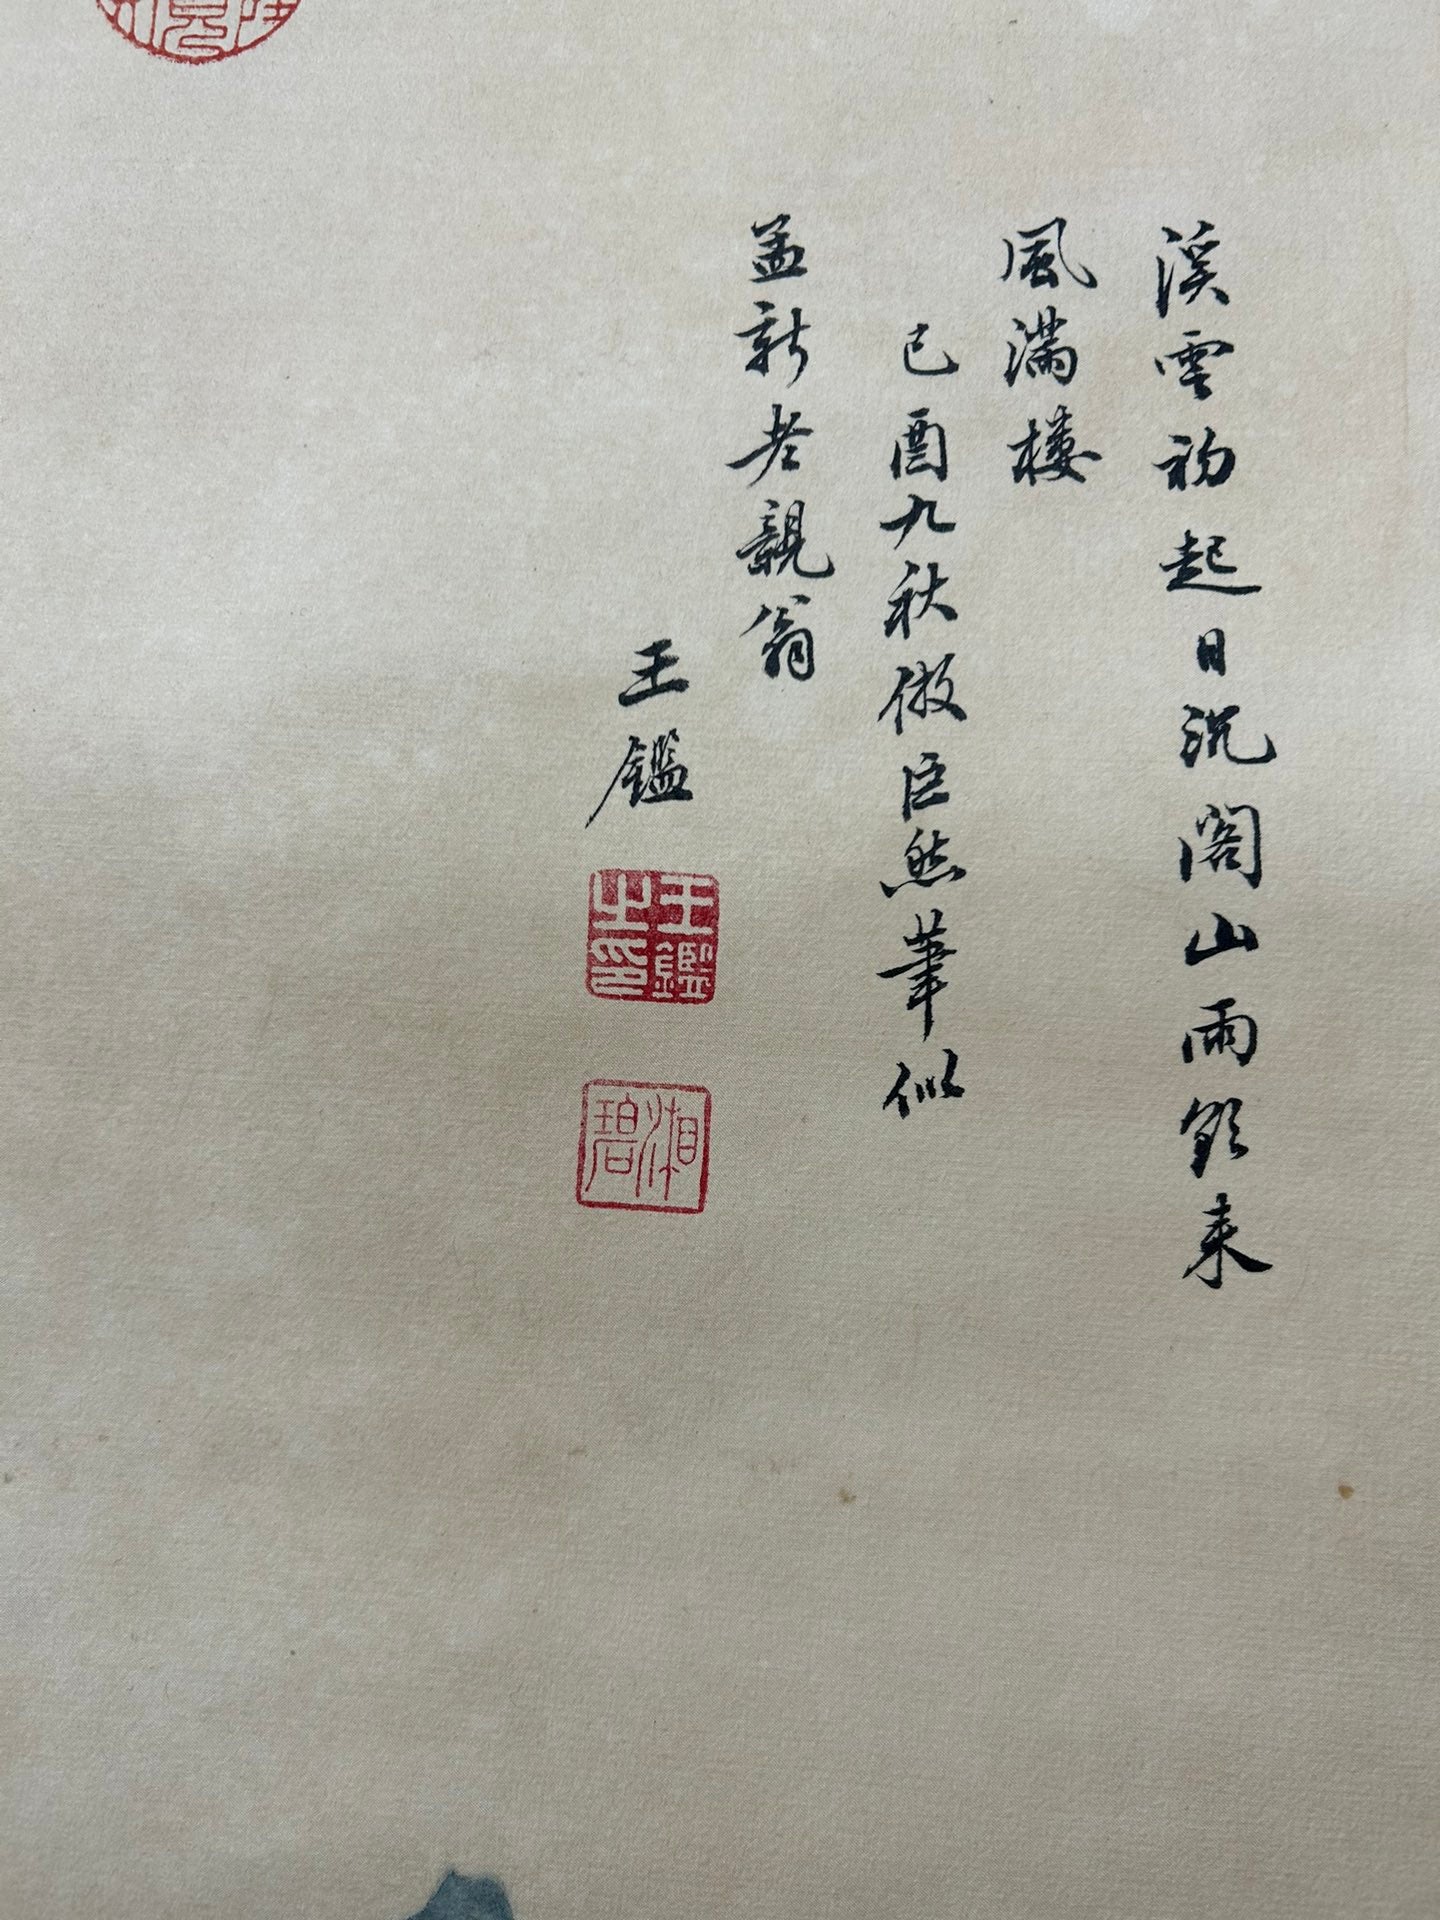 溪雲初起日沉閣山雨欲来
風滿樓
己酉九秋倣巨然筆似
孟新老親翁
王鑑
王鑑之印
湘碧